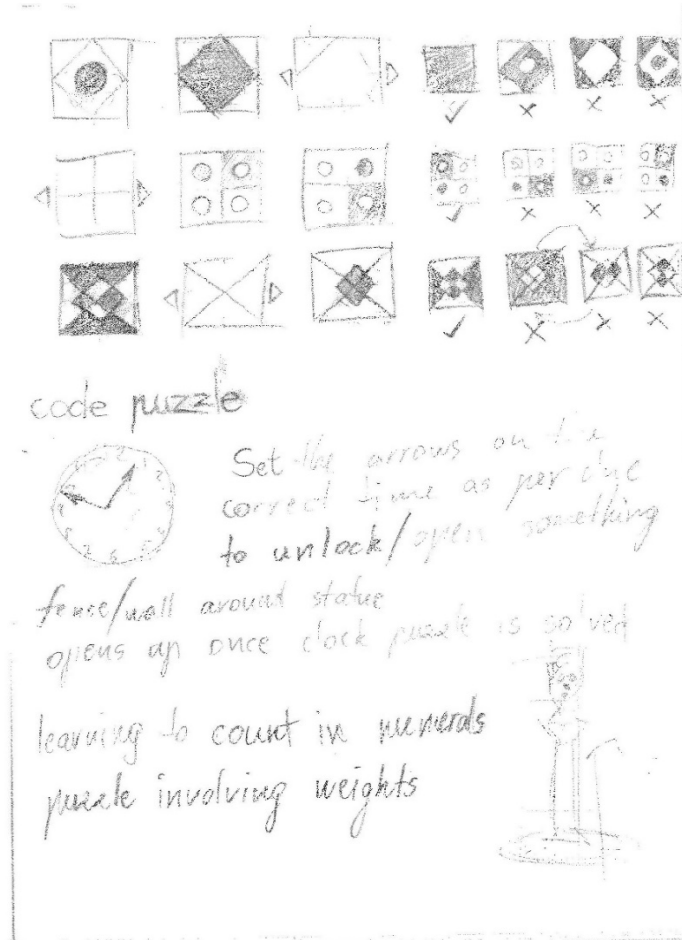 code puzzle
Set the arrows on the
correct time as per clue
to unlock/open something
fense/wall around statue
opens up once clock puzzle is solved
learning to count in numerals
puzzle involving weights